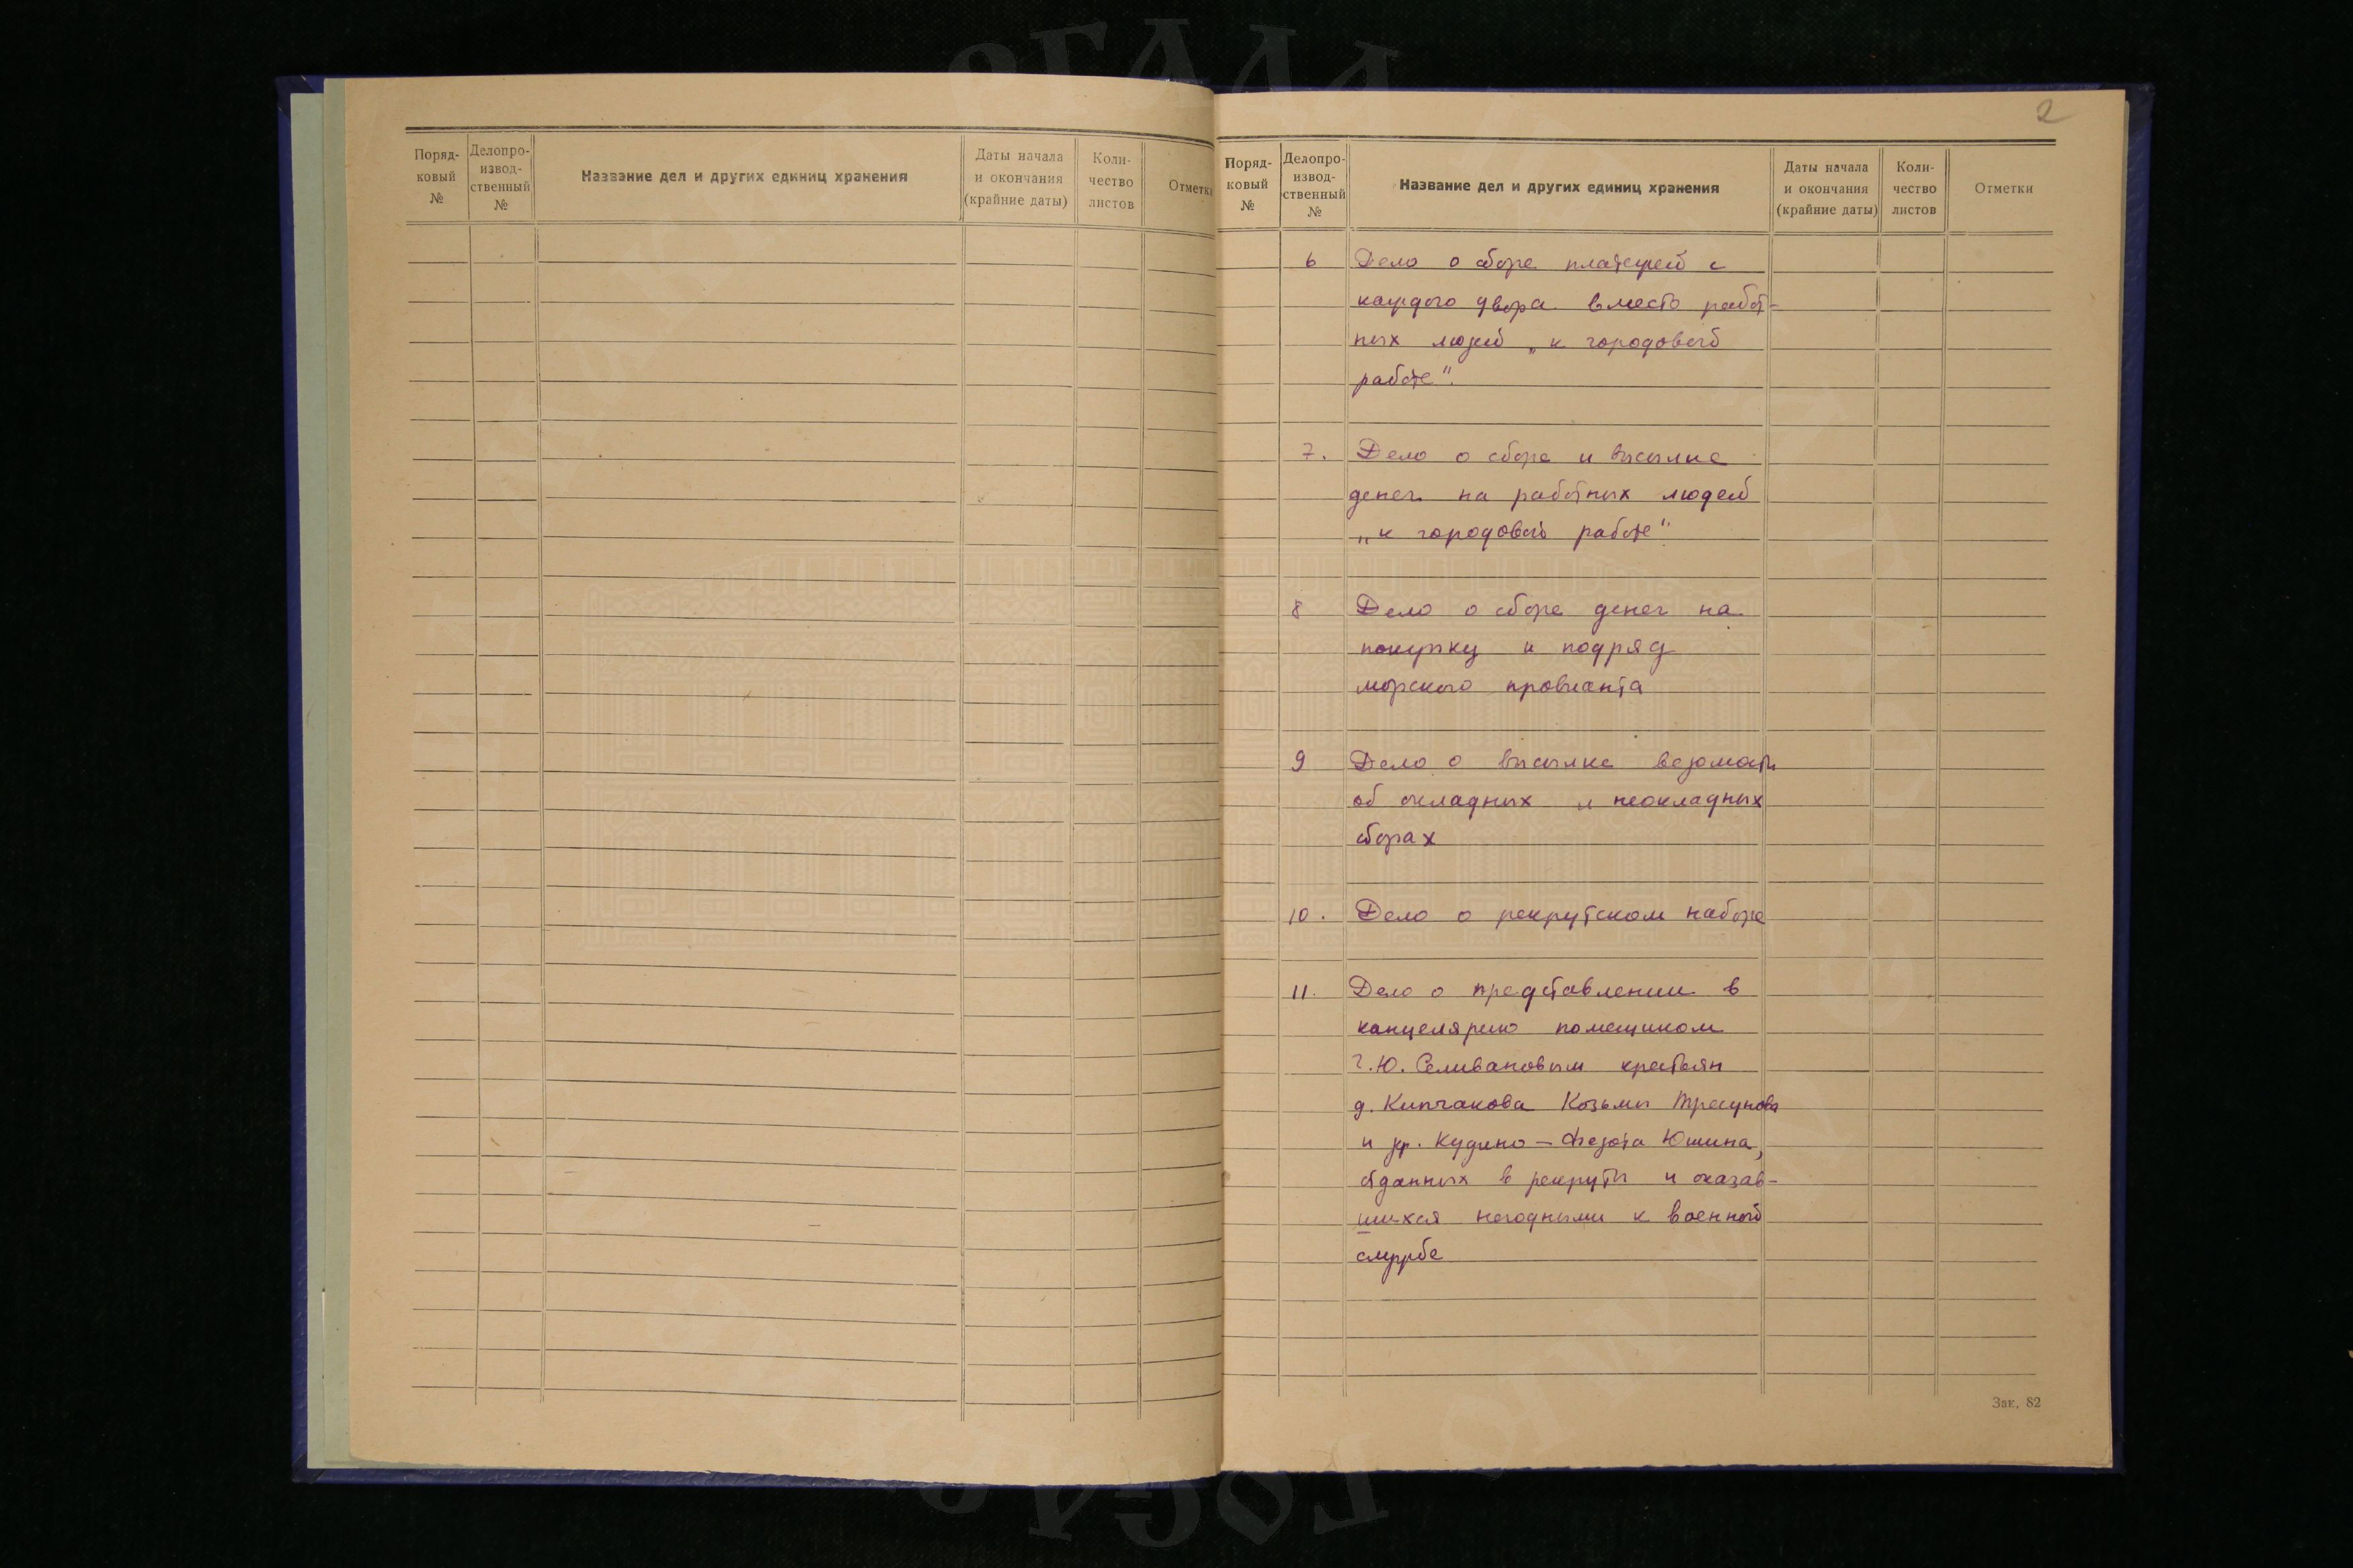 Поряд-
ковый
№
Делопро-
извод-
ственный
№
Название дел и других единиц хранения
Даты начала
и окончания
(крайние даты)
Коли-
чество
листов
Отметки
2
Поряд-
ковый
№
Делопро-
извод-
ственный
№
Название дел и других единиц хранения
Даты начала
и окончания
(крайние даты)
Коли-
чество
листов
Отметки
6 Дело о сборе платежей с
каждого двора вместо работ-
ных людей „к городовой
работе".
7. Дело о сборе и высылке
денег на работных людей
„к городовой работе"
8 Дело о сборе денег на
покупку и подряд
морского провианта
9 Дело о высылке ведомости
об окладных и неокладных
сборах
10. Дело о рекрутском наборе
11. Дело о представлении в
канцелярию помещиком
Г.Ю. Селивановым крестьян
д. Кипчакова Козьмы Трегунова
и др. Кудино – Федота Юшина,
отданных в рекруты и оказав-
шихся негодными к военной
службе
Зак. 82